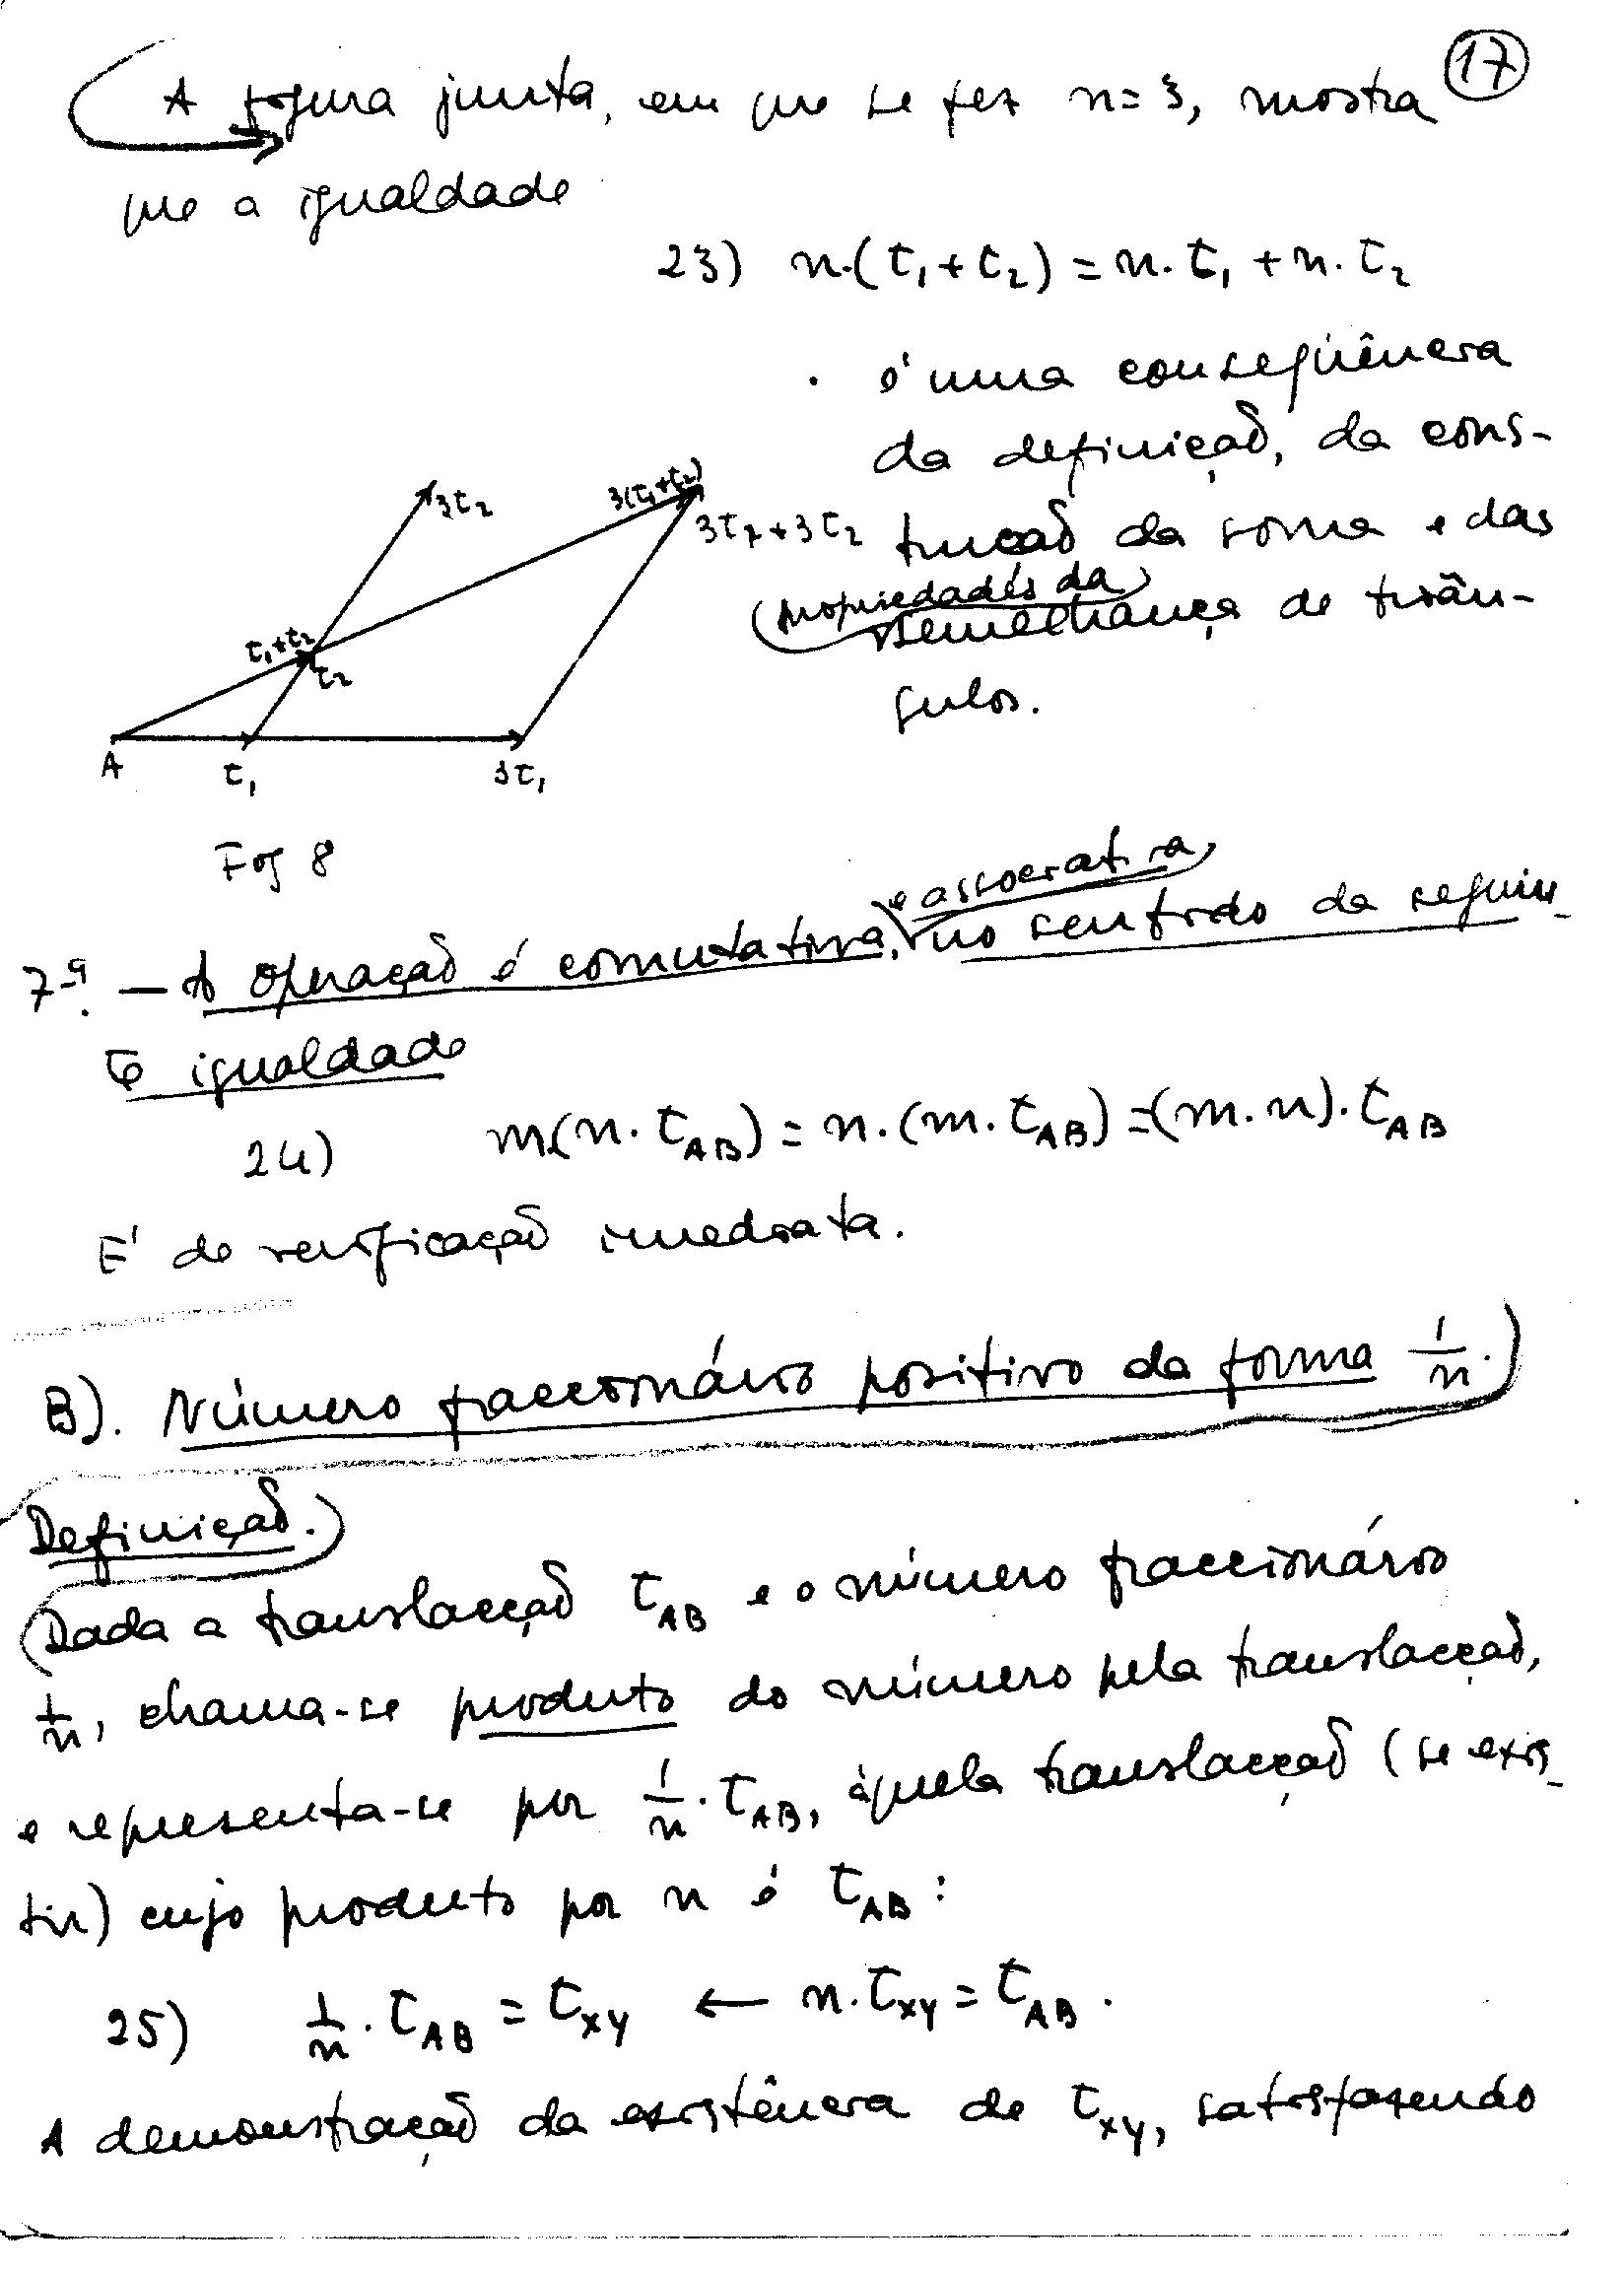 17
A figura junta, em que se fez n=3, mostra
que a igualdade
23) n·(τ₁+τ₂)=n·τ₁+n·τ₂
é uma conseqüência
da definição, da cons-
trução da soma e das
(propriedades da)
semelhança de triân-
gulos.
3τ₂
3(τ₁+τ₂)
3τ₁+3τ₂
τ₁+τ₂
τ₂
A τ₁ 3τ₁
Fig 8
e associativa,
7ª. — A operação é comutativa, no sentido da seguin-
te igualdade
24) m(n·τAB)=n·(m·τAB)=(m·n)·τAB
E' de verificação imediata.
B). Número fraccionário positivo da forma 1/n.
Definição.
Dada a translacção τAB e o número fraccionário
1/n, chama-se produto do número pela translacção,
e representa-se por 1/n·τAB, àquela translacção (se exis-
tir) cujo produto por n é τAB:
25) 1/n·τAB=τXY ← n·τXY=τAB.
A demonstração da existência de τXY, satisfazendo